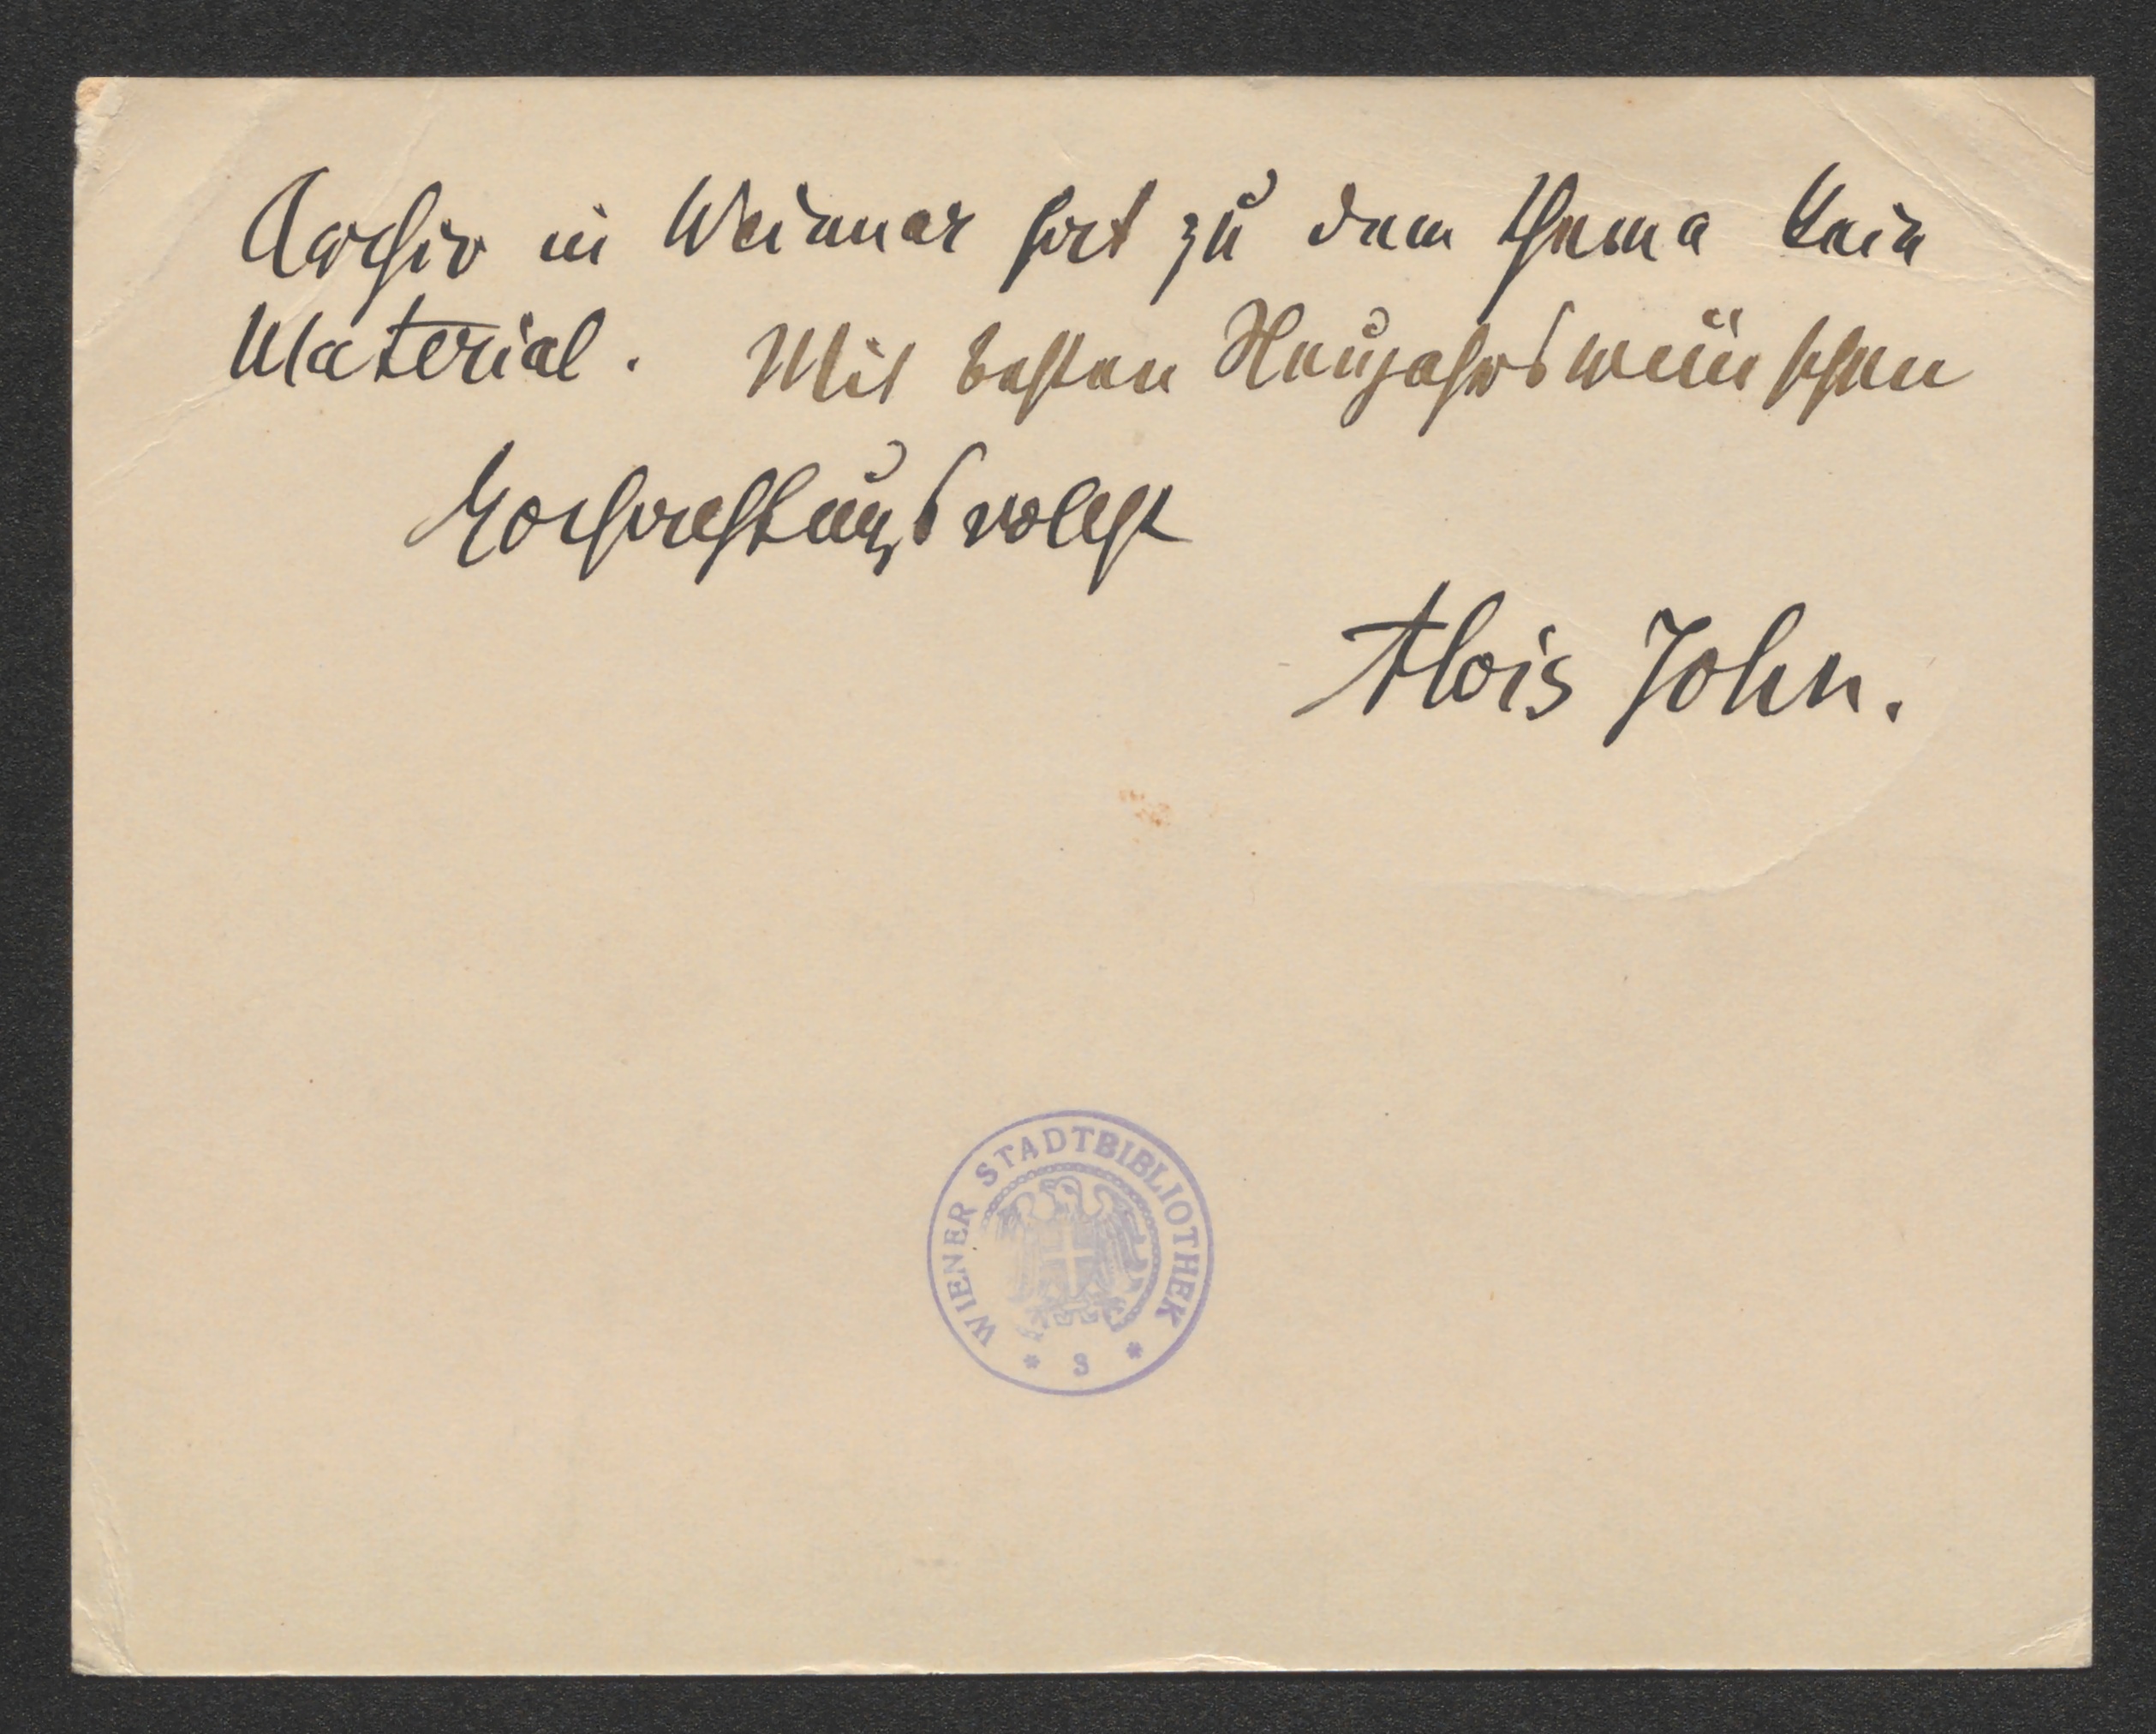 Archiv in Weimar hat zu dem Thema kein
Material. Mit besten Neujahrswünschen
Hochachtungsvollst
Alois John.
WIENER STADTBIBLIOTHEK
* S *